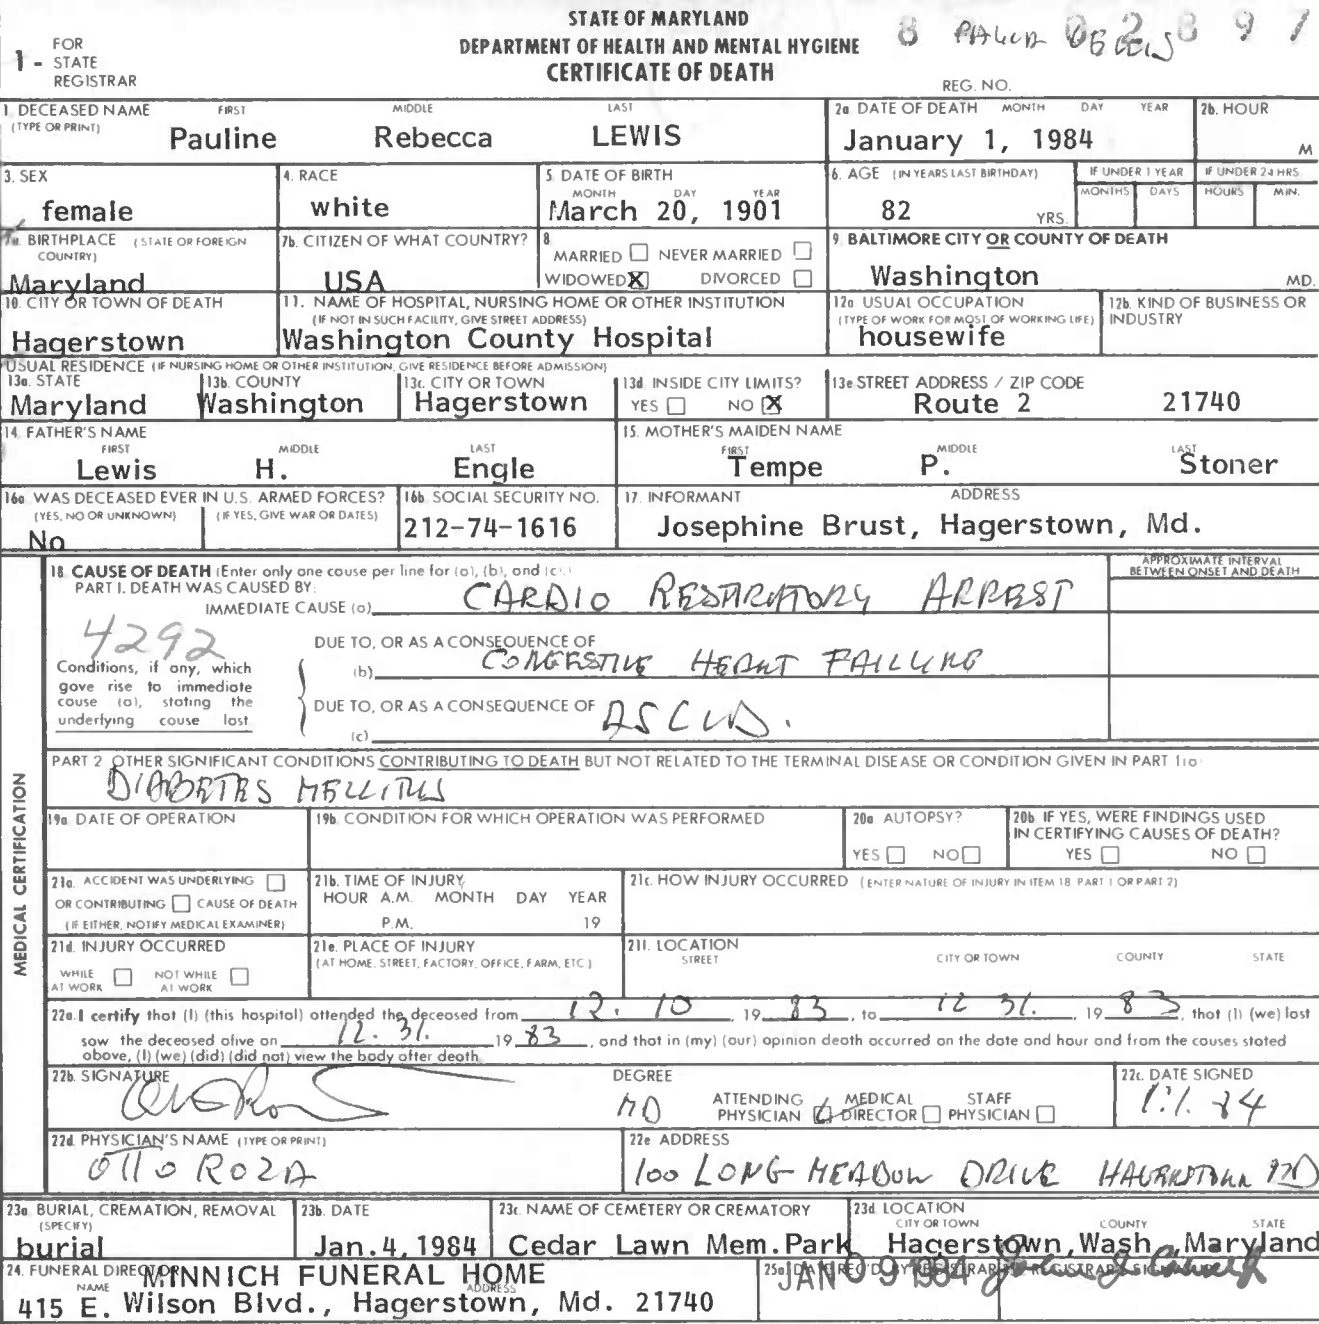 STATE OF MARYLAND
DEPARTMENT OF HEALTH AND MENTAL HYGIENE
CERTIFICATE OF DEATH
1 - FOR STATE REGISTRAR
8 02897
REG. NO.
1. DECEASED NAME FIRST MIDDLE LAST
(TYPE OR PRINT)
Pauline Rebecca LEWIS
2a DATE OF DEATH MONTH DAY YEAR
January 1, 1984
2b. HOUR
M
3. SEX
female
4. RACE
white
5. DATE OF BIRTH
MONTH DAY YEAR
March 20, 1901
6. AGE (IN YEARS LAST BIRTHDAY)
82 YRS.
IF UNDER 1 YEAR
MONTHS DAYS
IF UNDER 24 HRS
HOURS MIN.
7a. BIRTHPLACE (STATE OR FOREIGN
COUNTRY)
Maryland
7b. CITIZEN OF WHAT COUNTRY?
USA
8
MARRIED NEVER MARRIED
WIDOWED X DIVORCED
9. BALTIMORE CITY OR COUNTY OF DEATH
Washington MD.
10. CITY OR TOWN OF DEATH
Hagerstown
11. NAME OF HOSPITAL, NURSING HOME OR OTHER INSTITUTION
(IF NOT IN SUCH FACILITY, GIVE STREET ADDRESS)
Washington County Hospital
12a USUAL OCCUPATION
(TYPE OF WORK FOR MOST OF WORKING LIFE)
housewife
12b. KIND OF BUSINESS OR
INDUSTRY
USUAL RESIDENCE (IF NURSING HOME OR OTHER INSTITUTION, GIVE RESIDENCE BEFORE ADMISSION)
13a. STATE
Maryland
13b. COUNTY
Washington
13c. CITY OR TOWN
Hagerstown
13d INSIDE CITY LIMITS?
YES NO X
13e STREET ADDRESS / ZIP CODE
Route 2 21740
14. FATHER'S NAME
FIRST MIDDLE LAST
Lewis H. Engle
15. MOTHER'S MAIDEN NAME
FIRST MIDDLE LAST
Tempe P. Stoner
16a WAS DECEASED EVER IN U.S. ARMED FORCES?
(YES, NO OR UNKNOWN) (IF YES, GIVE WAR OR DATES)
No
16b SOCIAL SECURITY NO.
212-74-1616
17. INFORMANT ADDRESS
Josephine Brust, Hagerstown, Md.
MEDICAL CERTIFICATION
18 CAUSE OF DEATH (Enter only one cause per line for (a), (b), and (c).)
APPROXIMATE INTERVAL
BETWEEN ONSET AND DEATH
PART I. DEATH WAS CAUSED BY:
IMMEDIATE CAUSE (a) CARDIO RESPIRATORY ARREST
4292
Conditions, if any, which
gave rise to immediate
cause (a), stating the
underlying cause last
DUE TO, OR AS A CONSEQUENCE OF
(b) CONGESTIVE HEART FAILURE
DUE TO, OR AS A CONSEQUENCE OF
(c) ASCVD.
PART 2 OTHER SIGNIFICANT CONDITIONS CONTRIBUTING TO DEATH BUT NOT RELATED TO THE TERMINAL DISEASE OR CONDITION GIVEN IN PART 1(a)
DIABETES MELLITUS
19a DATE OF OPERATION
19b CONDITION FOR WHICH OPERATION WAS PERFORMED
20a AUTOPSY?
YES NO
20b IF YES, WERE FINDINGS USED
IN CERTIFYING CAUSES OF DEATH?
YES NO
21a. ACCIDENT WAS UNDERLYING
OR CONTRIBUTING CAUSE OF DEATH
(IF EITHER, NOTIFY MEDICAL EXAMINER)
21b. TIME OF INJURY
HOUR A.M. MONTH DAY YEAR
P.M. 19
21c. HOW INJURY OCCURRED (ENTER NATURE OF INJURY IN ITEM 18 PART 1 OR PART 2)
21d. INJURY OCCURRED
WHILE AT WORK NOT WHILE AT WORK
21e. PLACE OF INJURY
(AT HOME, STREET, FACTORY, OFFICE, FARM, ETC.)
21f. LOCATION
STREET CITY OR TOWN COUNTY STATE
22a. I certify that (I) (this hospital) attended the deceased from 12. 10 19 83, to 12 31. 19 83, that (I) (we) last
saw the deceased alive on 12. 31. 19 83, and that in (my) (our) opinion death occurred on the date and hour and from the causes stated
above, (I) (we) (did) (did not) view the body after death
22b. SIGNATURE
DEGREE
MD
ATTENDING PHYSICIAN MEDICAL DIRECTOR STAFF PHYSICIAN
22c. DATE SIGNED
1.1. 84
22d. PHYSICIAN'S NAME (TYPE OR PRINT)
OTTO ROZA
22e ADDRESS
100 LONG MEADOW DRIVE HAGERSTOWN MD
23a. BURIAL, CREMATION, REMOVAL
(SPECIFY)
burial
23b. DATE
Jan. 4, 1984
23c. NAME OF CEMETERY OR CREMATORY
Cedar Lawn Mem. Park
23d. LOCATION
CITY OR TOWN COUNTY STATE
Hagerstown, Wash., Maryland
24. FUNERAL DIRECTOR
NAME ADDRESS
MINNICH FUNERAL HOME
415 E. Wilson Blvd., Hagerstown, Md. 21740
25a DATE REC'D BY REGISTRAR
JAN 09 1984
REGISTRAR'S SIGNATURE